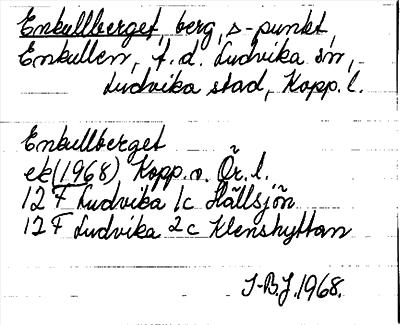 Enkullberget, berg, ▵-punkt,
Enkullen, f.d. Ludvika sn,
Ludvika stad, Kopp. l.
Enkullberget
ek (1968) Kopp. o. Ör. l.
12 F Ludvika 1c Hällsjön
12 F Ludvika 2c Klenshyttan
I-B.J. 1968.